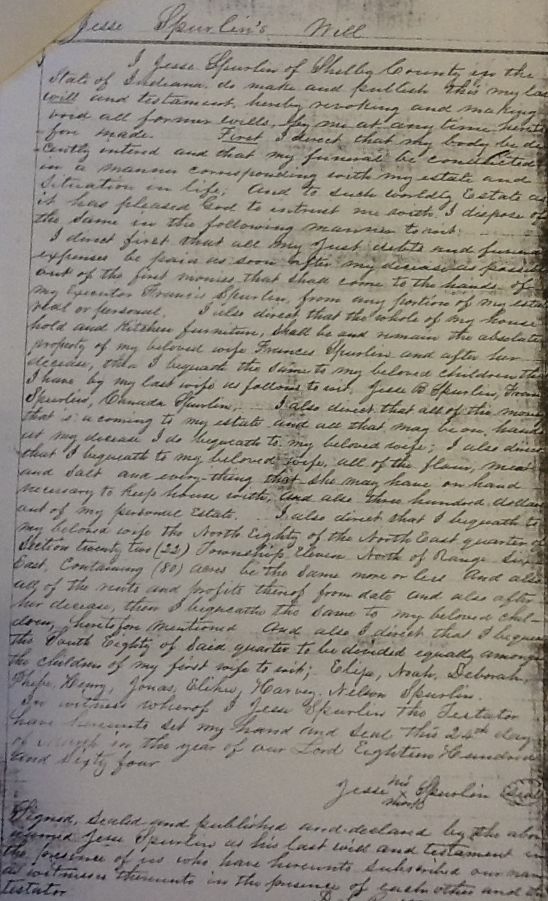 Jesse Spurlin's Will
I Jesse Spurlin of Shelby County in the
State of Indiana, do make and publish this my las
will and testament, hereby revoking and making
void all former wills, by me at any time hereto
fore made. First I direct, that my body be de
cently interred and that my funeral be conducted
in a manner corresponding with my estate and
Situation in life; And to such worldly Estate as
it has pleased God to intrust me with I dispose of
the same in the following manner to wit:
I direct first that all my just debts and funeral
expenses be paid as soon after my decease as possible
out of the first monies, that shall come to the hands of
my Executor Francis Spurlin, from any portion of my esta
real or personal. I also direct that the whole of my house
hold and Kitchen furniture, shall be and remain the absolute
property of my beloved wife Frances Spurlin and after her
decease, then I bequeath the same to my beloved children tha
I have by my last wife as follows to wit, Jesse B Spurlin,
Spurlin, Canada Spurlin, I also direct that all of the mone
that is a coming to my estate and all that may be on hand
at my decease I do bequeath to my beloved wife; I also direc
that I bequeath to my beloved wife, all of the flour, meat
and Salt and every-thing that she may have on hand
necessary to keep house with, and also three hundred dollars
out of my personal Estate. I also direct that I bequeath to
my beloved wife the North Eighty of the North East quarter of
Section twenty two (22) Township Eleven North of Range Six
East, Containing (80) acres be the same more or less And also
all of the rents and profits thereof from date and also after
her decease, then I bequeath the same to my beloved chil-
dren, heretofore mentioned And also I direct that I beque
the South Eighty of Said quarter to be decided equally among
the children of my first wife to wit; Noah, Deborah,
Henry, Jonas, Elihu, Harvey, Nelson Spurlin.
In witness whereof I Jesse Spurlin the Testator
have hereunto set my hand and seal this 24th day
of March in the year of our Lord Eighteen Hundred
and Sixty four
Jesse his mark Spurlin Seal
Signed, sealed and published and declared by the abov
named Jesse Spurlin as his last will and testament in
the presence of us who have hereunto subscribed our nam
as witnesses thereunto in the presence of each other and the
testator